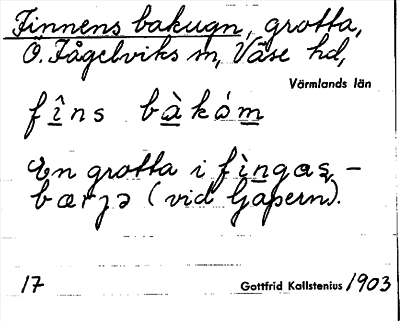 Finnens bakugn, grotta,
Ö. Fågelviks sn, Väse hd,
Värmlands län
fîns bàkóm
En grotta i fìngas,-
bærjə (vid Gapern).
17 Gottfrid Kallstenius 1903